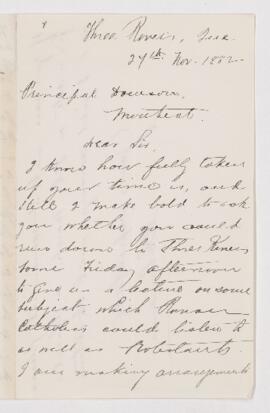 Three Rivers, Que.
27th Nov. 1882.
Principal Dawson,
Montreal.
Dear Sir,
I know how fully taken
up your time is, and
still I make bold to ask
you whether you could
run down to Three Rivers
some Friday afternoon
to give us a lecture on some
subject which Roman
Catholics could listen to
as well as Protestants.
I am making arrangements